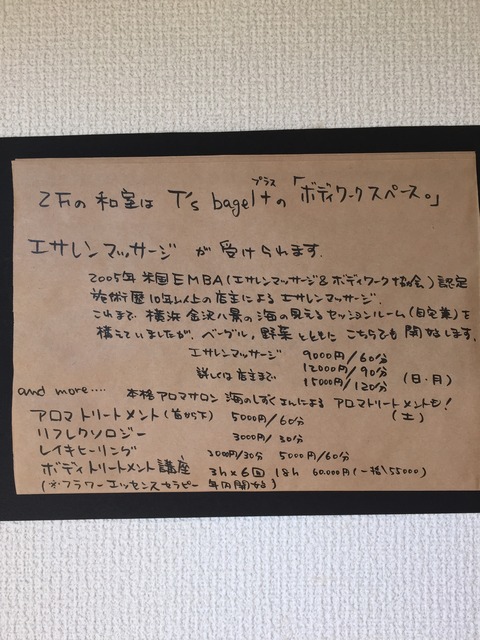 プラス
2Fの和室は T's bagel+の「ボディワークスペース。」
エサレンマッサージ が 受けられます.
2005年 米国EMBA(エサレンマッサージ&ボディワーク協会)認定
施術歴10年以上の店主による エサレンマッサージ.
これまで 横浜 金沢八景の海の見えるセッションルーム(自宅業)を
構えていましたが. ベーグル, 野菜とともに こちらでも 開始します.
エサレンマッサージ 9000円/60分
12000円/90分
詳しくは店主まで 15000円/120分 (日・月)
and more.... 本格アロマサロン 海のしずくさんによる アロマトリートメントも!
アロマトリートメント(首から下) 5000円/60分 (土)
リフレクソロジー 3000円/30分
レイキヒーリング 3000円/30分 5000円/60分
ボディトリートメント講座 3h×6回 18h 60.000円(一括\55000)
(※フラワーエッセンスセラピー 年内開始)